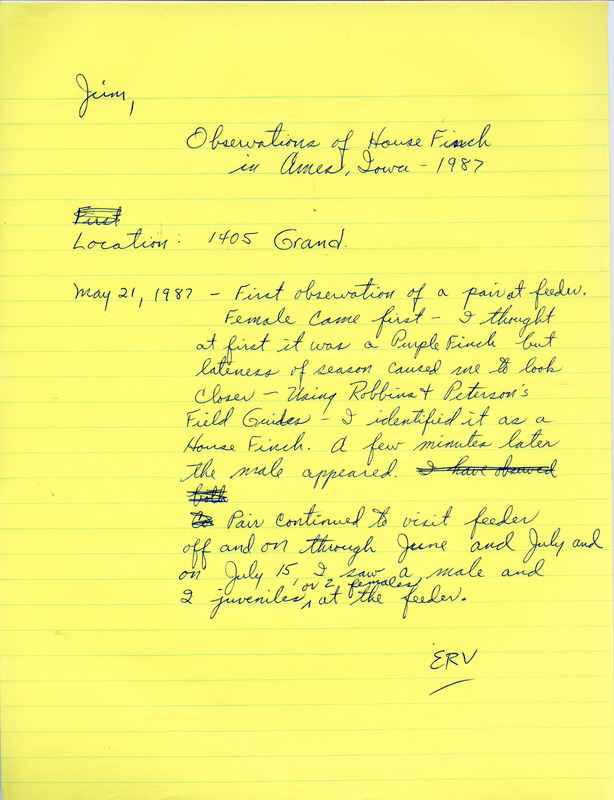 Jim,
Observations of House Finch
in Ames, Iowa - 1987
First
Location: 1405 Grand.
May 21, 1987 - First observation of a pair at feeder.
Female came first - I thought
at first it was a Purple Finch but
lateness of season caused me to look
closer - Using Robbins & Peterson's
Field Guides - I identified it as a
House Finch. A few minutes later
the male appeared. I have observed
both
Co Pair continued to visit feeder
off and on through June and July and
on July 15, I saw a male and
2 juveniles ^ or 2 females, at the feeder.
ERV